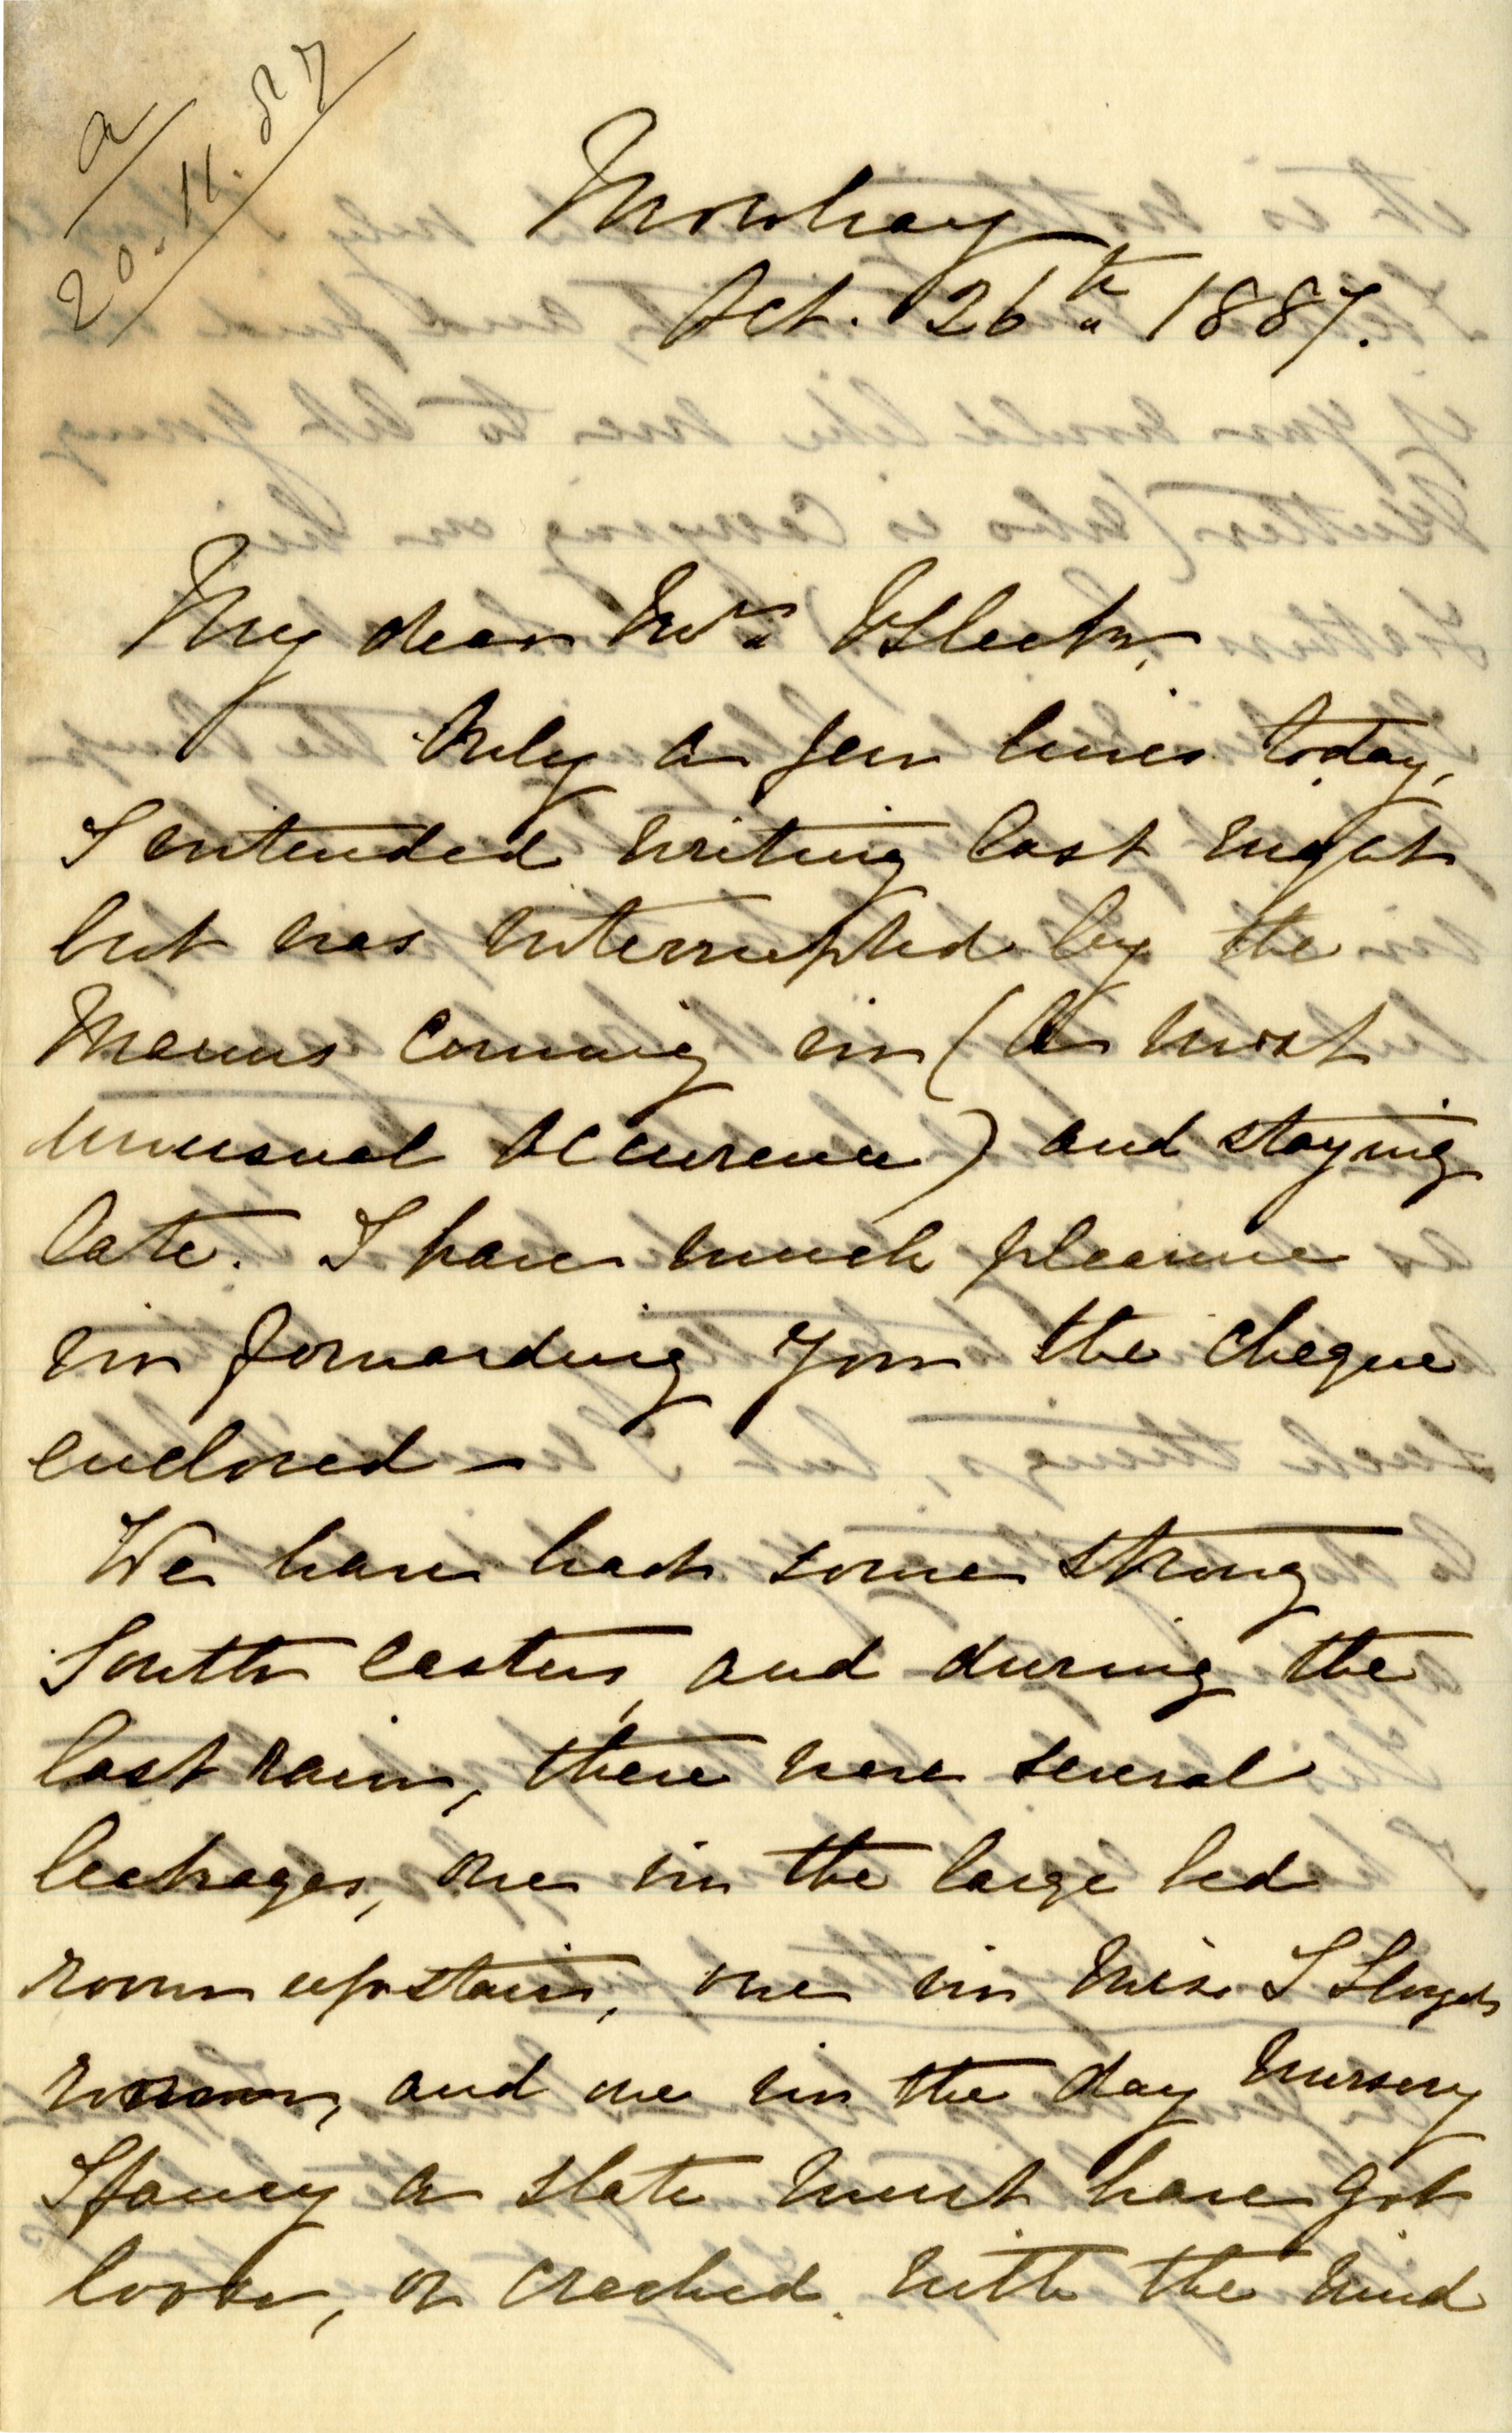 a
20.11.87
Mowbray
Oct. 26th 1887.
My dear Mrs Bleek,
Only a few lines today,
I intended writing last night
but was interrupted by the
coming in (a most
unusual occurence) and staying
late. I have much pleasure
in forwarding you the cheque
enclosed –
We have had some strong
South easters, and during the
last rain, there were several
leakages, one in the large bed
room upstairs, one in Miss L Lloyds
room, and one in the day nursery
I fancy a slate must have got
loose, or cracked. with the wind